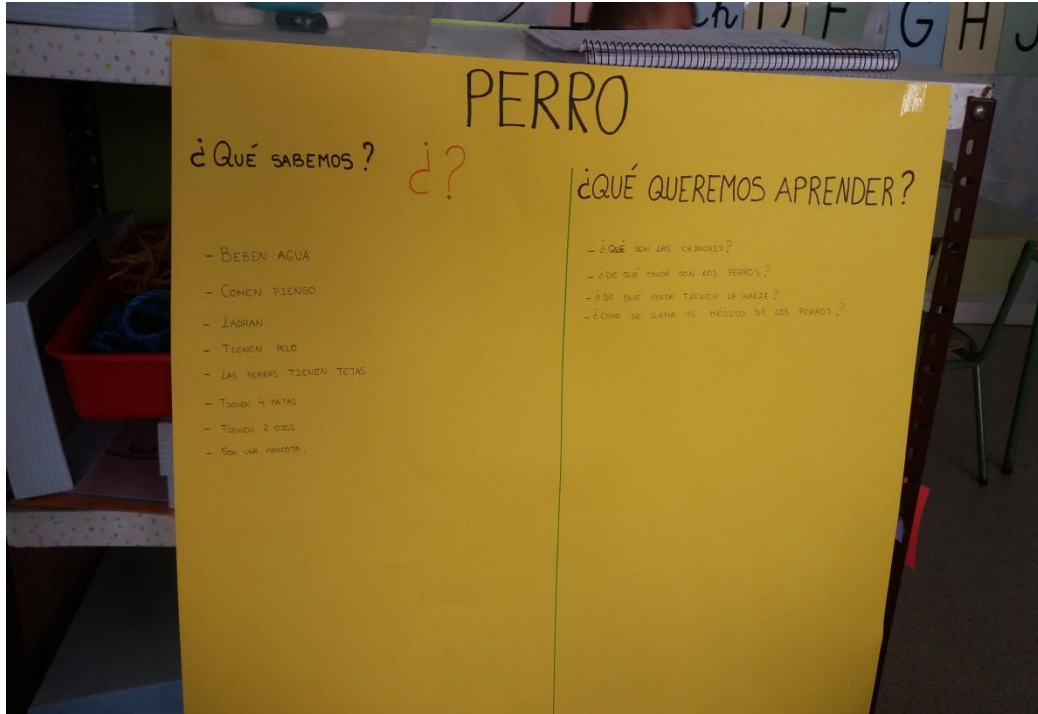 ch D F G H J
PERRO
¿QUÉ SABEMOS?
¿?
- BEBEN AGUA
- COMEN PIENSO
- LADRAN
- TIENEN PELO
- LAS PERRAS TIENEN TETAS
- TIENEN 4 PATAS
- TIENEN 2 OJOS
- SON UNA MASCOTA.
¿QUÉ QUEREMOS APRENDER?
- ¿QUÉ SON LAS CHINCHES?
- ¿DE QUÉ COLOR SON LOS PERROS?
- ¿DE QUÉ COLOR TIENEN LA NARIZ?
- ¿CÓMO SE LLAMA EL MÉDICO DE LOS PERROS?